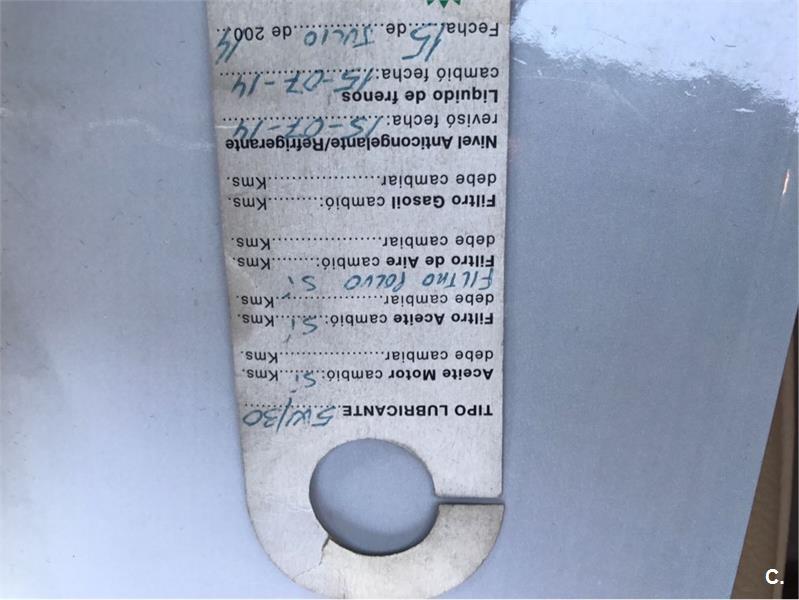 TIPO LUBRICANTE 5W/30
Aceite Motor cambió: Sí Kms.
debe cambiar....................Kms.
Filtro Aceite cambió: Sí Kms.
debe cambiar....................Kms.
FILTRO POLVO Sí
Filtro de Aire cambió:..........Kms.
debe cambiar....................Kms.
Filtro Gasoil cambió:...........Kms.
debe cambiar....................Kms.
Nivel Anticongelante/Refrigerante
revisó fecha: 15-07-14
Líquido de frenos
cambió fecha: 15-07-14
Fecha 15 de JULIO de 200 14
C.